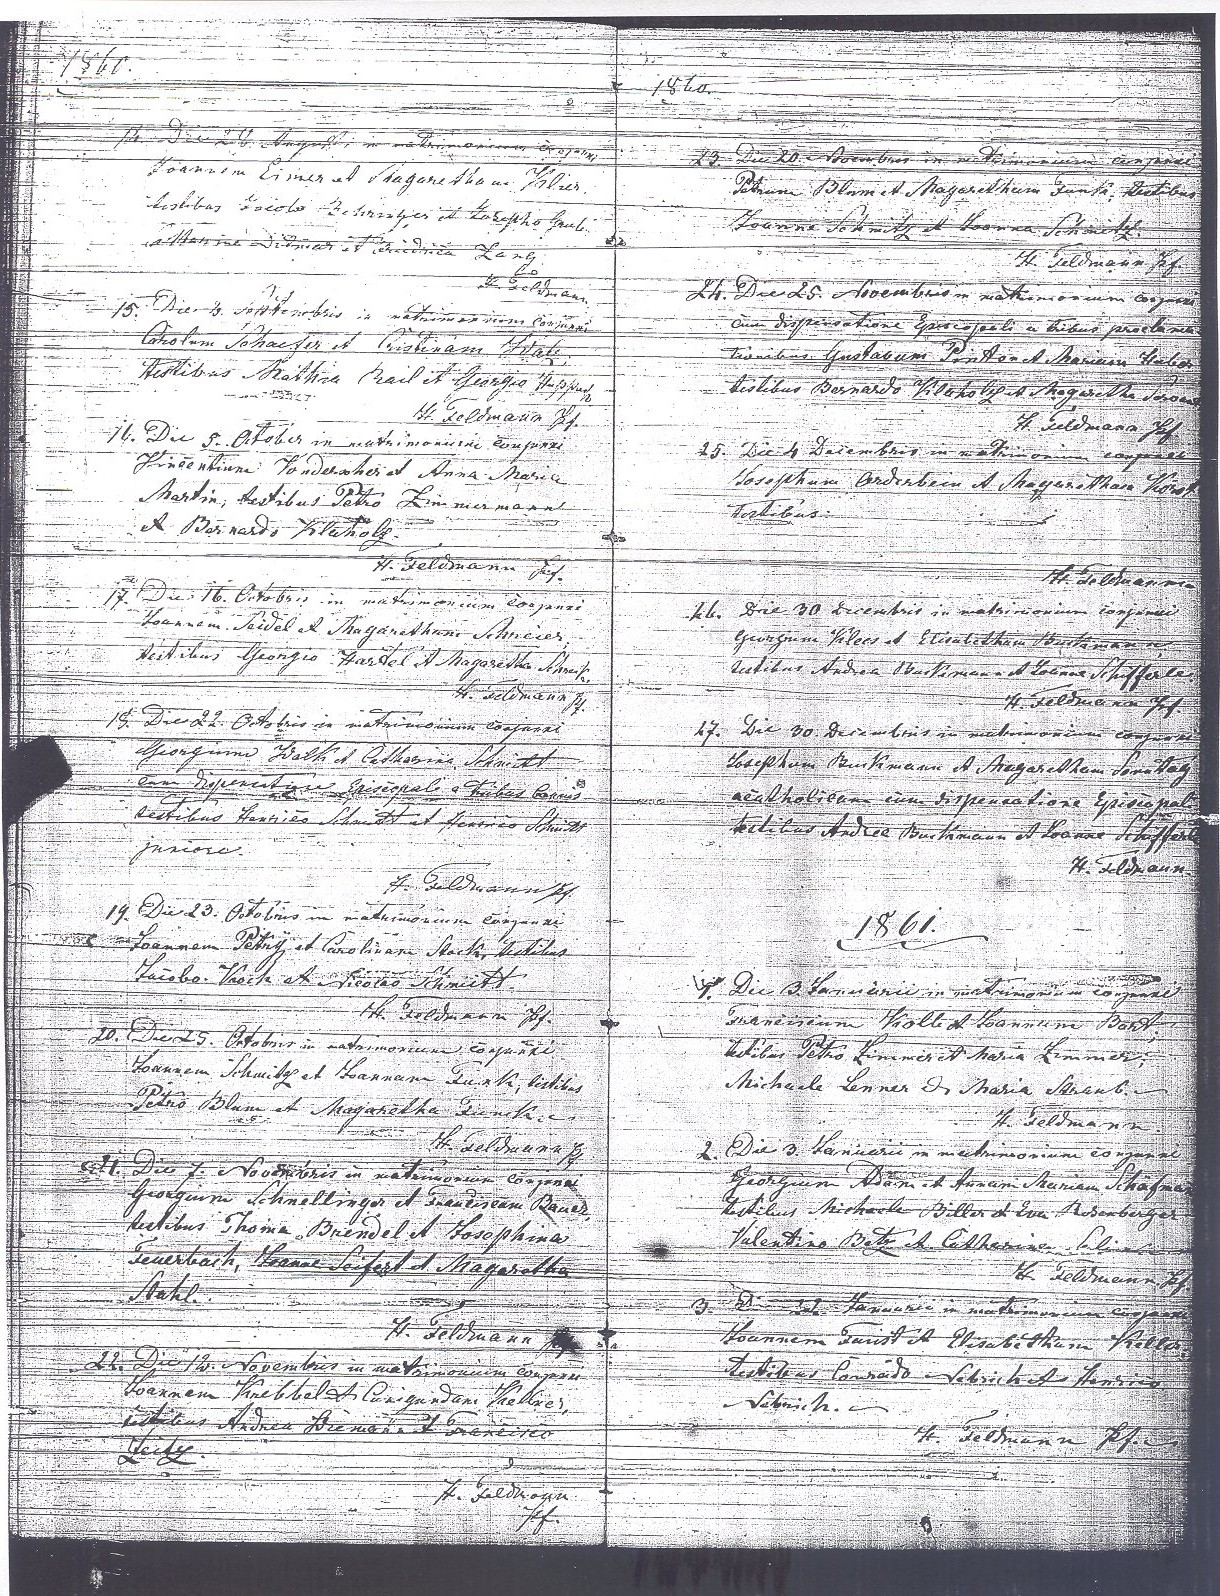 1860.
14. Die 26 Augusti in matrimonium conjunxi
Joannem Eimer et Magaretham Klier
testibus Jacobo et Josepho
et Zang
H. Feldmann
15. Die 3. Septembris in matrimonium conjunxi
Carolum Schaefer et Cristinam
testibus Mathia et Georgio
H. Feldmann Pf.
16. Die 5. October in matrimonium conjunxi
Vincentium Vonderscher et Anna Maria
Martin, testibus Petro Zimmermann
et Bernardo Klaholz.
H. Feldmann Pf.
17. Die 16. Octobris in matrimonium conjunxi
Joannem Seidel et Magaretham Schreier,
testibus Georgio Hartel et Magaretha
H. Feldmann Pf.
18. Die 22. Octobris in matrimonium conjunxi
Georgium Walk et Catharina Schmitt
cum dispensatione Episcopale a tribus
testibus Henrico Schmitt et Henrico Schmitt
juniore.
H. Feldmann Pf.
19. Die 23. Octobris in matrimonium conjunxi
Joannem Petry et Carolinam Stock, testibus
Jacobo Koch et Nicolao Schmitt.
H. Feldmann Pf.
20. Die 25. Octobris in matrimonium conjunxi
Joannem Schmitz et Joannam Funk, testibus
Petro Blum et Magaretha Funck.
H. Feldmann Pf.
21. Die 7. Novembris in matrimonium conjunxi
Georgium Schnellinger et Franciscam Bauer,
testibus Thoma Brendel et Josephina
Feuerbach, Joanne Seifert et Magaretha
Stahl.
H. Feldmann
22. Die 12. Novembris in matrimonium conjunxi
Joannem Krebbel et Cunigundam Kellner,
testibus Andrea Biemann et Francisco
Zeitz.
H. Feldmann
Pf.
1860.
23. Die 20. Novembris in matrimonium conjunxi
Petrum Blum et Magaretham Funk, testibus
Joanne Schmitz et Joanna Schmitz.
H. Feldmann Pf.
24. Die 25. Novembris in matrimonium conjunxi
cum dispensatione Episcopali a tribus proclama
tionibus Gustavum Ponton et Mariam Huber
testibus Bernardo Klaholz et Magaretha
H. Feldmann Pf
25. Die 4 Decembris in matrimonium conjunxi
Josephum Orderbein et Magaretham
testibus:
H. Feldmann
26. Die 30 Decembris in matrimonium conjunxi
Georgium Klees et Elisabetham Buckmann
testibus Andrea Buckmann et Joanne Schifferle.
H. Feldmann Pf.
27. Die 30. Decembris in matrimonium conjunxi
Josephum Buckmann et Magaretham Sonntag
acatholicam cum dispensatione Episcopal
testibus Andrea Buckmann et Joanne Schifferle
H. Feldmann
1861.
1. Die 3. Januarii in matrimonium conjunxi
Franciscum Kolle et Joannam Bardt,
testibus Petro Zimmer et Maria Zimmer,
Michaele Lenner et Maria Straub.
H. Feldmann.
2. Die 3. Januarii in matrimonium conjunxi
Georgium Adam et Annam Mariam
testibus Michaele Biller et Eva Rosenberger
Valentino Betz et Catharina
H. Feldmann Pf.
3. Die 22. Januarii in matrimonium conjunxi
Joannem Faust et Elisabetham Keller.
testibus Conrado Nebrich et Henrico
Nebrich.
H. Feldmann Pf.